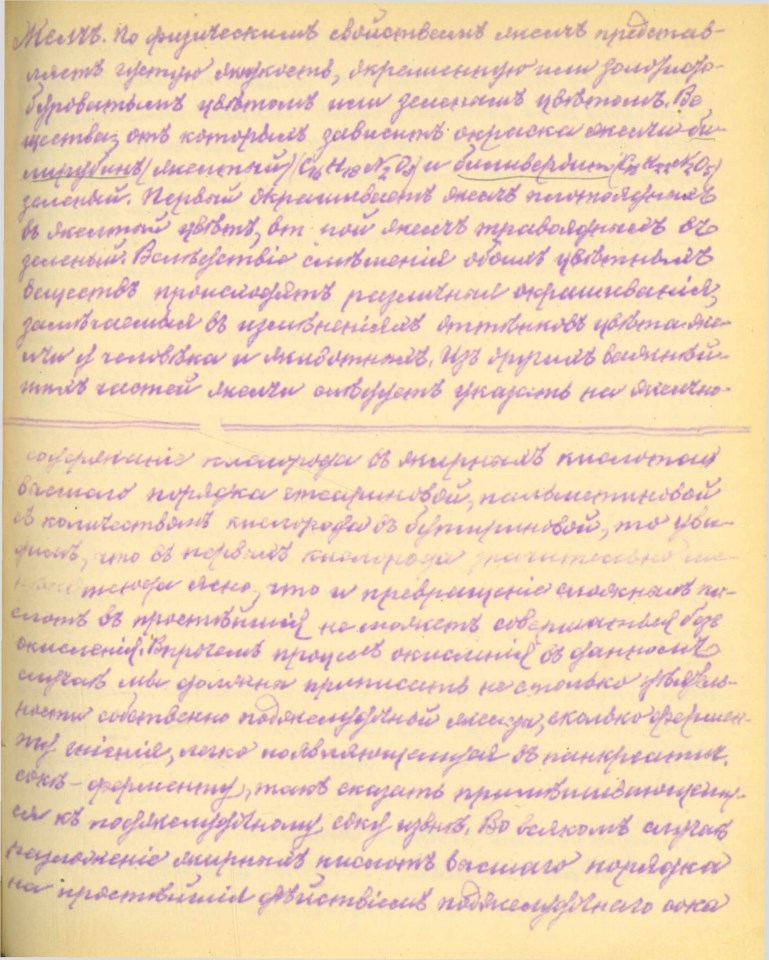 Желчь. По физическимъ свойствамъ желчь представ-
ляетъ густую жидкость, окрашенную или золотисто-
буроватымъ цвѣтомъ или зеленымъ цвѣтомъ. Ве
щества, отъ которыхъ зависитъ окраска желчи би-
лирубинъ (желтый) (C16 H18 N2 O3) и биливердинъ
зеленый. Первый окрашиваетъ желчь плотоядныхъ
въ желтый цвѣтъ, вт-рой желчь травоядныхъ въ
зеленый. Вслѣдствіе смѣшенія обоихъ цвѣтныхъ
веществъ происходятъ различныя окрашиванія,
замѣчаемыя въ измѣненіяхъ оттѣнковъ цвѣта же-
лчи у человѣка и животныхъ. Изъ другихъ важнѣй-
шихъ частей желчи слѣдуетъ указать на желчно-
содержаніе кислорода въ жирныхъ кислотахъ
высшаго порядка стеариновой, пальметиновой
съ количествомъ кислорода въ бутириновой, то уви-
димъ, что въ первыхъ кислорода значительно ме-
отсюда ясно, что и превращеніе сложныхъ ки-
слотъ въ простѣйшія не можетъ совершаться безъ
окисленія. Впрочемъ процессъ окисленія въ данномъ
случаѣ мы должны приписать не столько дѣятель-
ности собственно поджелудочной железы, сколько фермен-
ту гніенія, легко появляющемуся въ панкреатич.
сокѣ - ферменту, такъ сказать примѣшивающему-
ся къ поджелудочному соку извнѣ. Во всякомъ случаѣ
разложеніе жирныхъ кислотъ высшаго порядка
на простѣйшія дѣйствіемъ поджелудочнаго сока